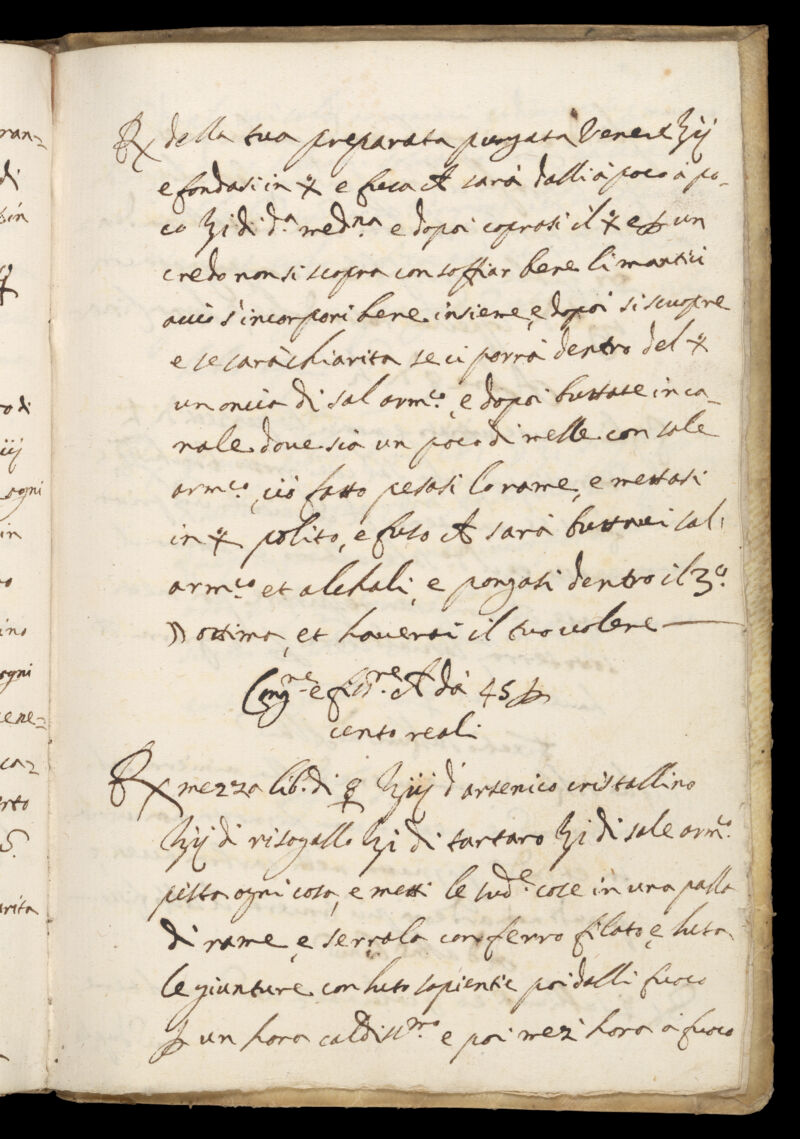 ran=
di
ro di
ogni
in
ino
ogni
ene=
ca=
erto
S.
arita
℞ della tua preparata purgata Venere ℥ij
e fondasi in 🝧 e fusa ch̃ sarà dalli à poco à po-
co ℥i di d.ᵃ med.ⁿᵃ e dopoi coprasi il 🝧 e ꝑ un
credo non si scopra con soffiar bene li mantici
acciò s'incorpori bene insieme, e dopoi si scuopre
e se sarà chiarita se ci porrà dentro del 🝧
un oncia di sal arm.ᶜᵒ, e dopoi buttate in ca-
nale dove sia un poco di melle con sale
arm.ᶜᵒ, ciò fatto pesasi lo rame, e mettasi
in 🝧 polito, e fuso ch̃ sarà buttavi sal
arm.ᶜᵒ et alchali, e pongasi dentro il 3.º
☽ ottima, et haverai il tuo volere
e ch̃ dà 45 ꝑ
cento reali
℞ mezza lib. di ☿ ℥iij d'arsenico cristallino
℥ij di risogallo ℥i di tartaro ℥i di sale arm.º
pista ogni cosa, e metti le sud.ᵉ cose in una palla
di rame, e serrala con ferro filato, e luta
le giunture con luto sapientie poi dalli fuoco
ꝑ un hora caldiss.ᵐᵒ e poi mezz' hora à fuoco